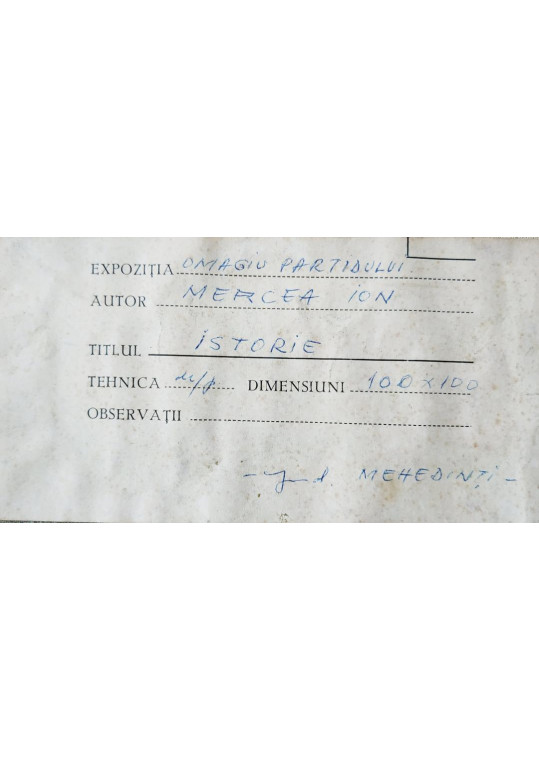 EXPOZIŢIA OMAGIU PARTIDULUI
AUTOR MERCEA ION
TITLUL ISTORIE
TEHNICA u/p DIMENSIUNI 100 x 100
OBSERVAŢII
- jud MEHEDINȚI -